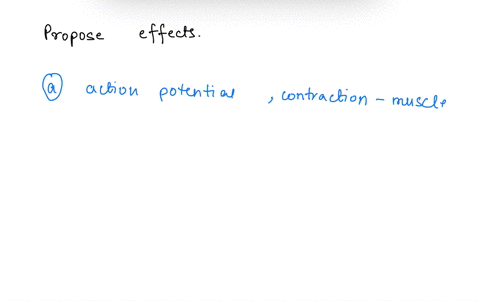 Propose effects.
a action potential , contraction - muscle